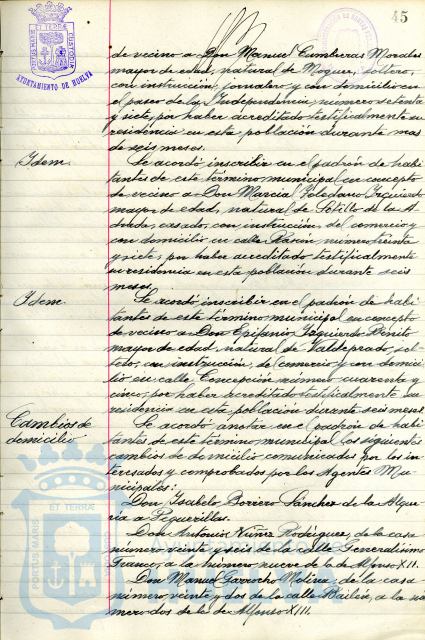 45
PORTUS MARIS ET TERRAE CUSTODIA
AYUNTAMIENTO DE HUELVA
de vecino a Don Manuel Cumbreras Morales
mayor de edad, natural de Moguer, soltero,
con instrucción, jornalero y con domicilio en
el paseo de la Independencia, número setenta
y siete, por haber acreditado testificalmente su
residencia en esta población durante mas
de seis meses.
Idem.
Se acordó inscribir en el padrón de habi
tantes de este término municipal en concepto
de vecino a Don Marcial Toledano Izquierdo
mayor de edad, natural de Sotillo de la A
drada, casado, con instrucción, del comercio y
con domicilio en calle Rascón número treinta
y siete, por haber acreditado testificalmente
su residencia en esta población durante seis
meses.
Idem.
Se acordó inscribir en el padrón de habi
tantes de este término municipal en concepto
de vecino a Don Epifanio Izquierdo Benito
mayor de edad, natural de Valdeprado, sol-
tero, con instrucción, de comercio y con domici
lio en calle Concepción número cuarenta y
cinco, por haber acreditado testificalmente su
residencia en esta población durante seis meses.
Cambios de
domicilio
Se acordó anotar en el padrón de habi
tantes de este término municipal los siguientes
cambios de domicilio comunicados por los in
teresados y comprobados por los Agentes Mu
nicipales:
Don Ysabelo Borrero Sánchez de la Alque
ría a Peguerillas.
Don Antonio Núñez Rodríguez, de la casa
número veinte y seis de la calle Generalísimo
Franco, a la número nueve de la de Alfonso XII.
Don Manuel Garrocho Molina, de la casa
número veinte y dos de la calle Bailén, a la nú
mero dos de la de Alfonso XIII.
PORTUS MARIS ET TERRAE